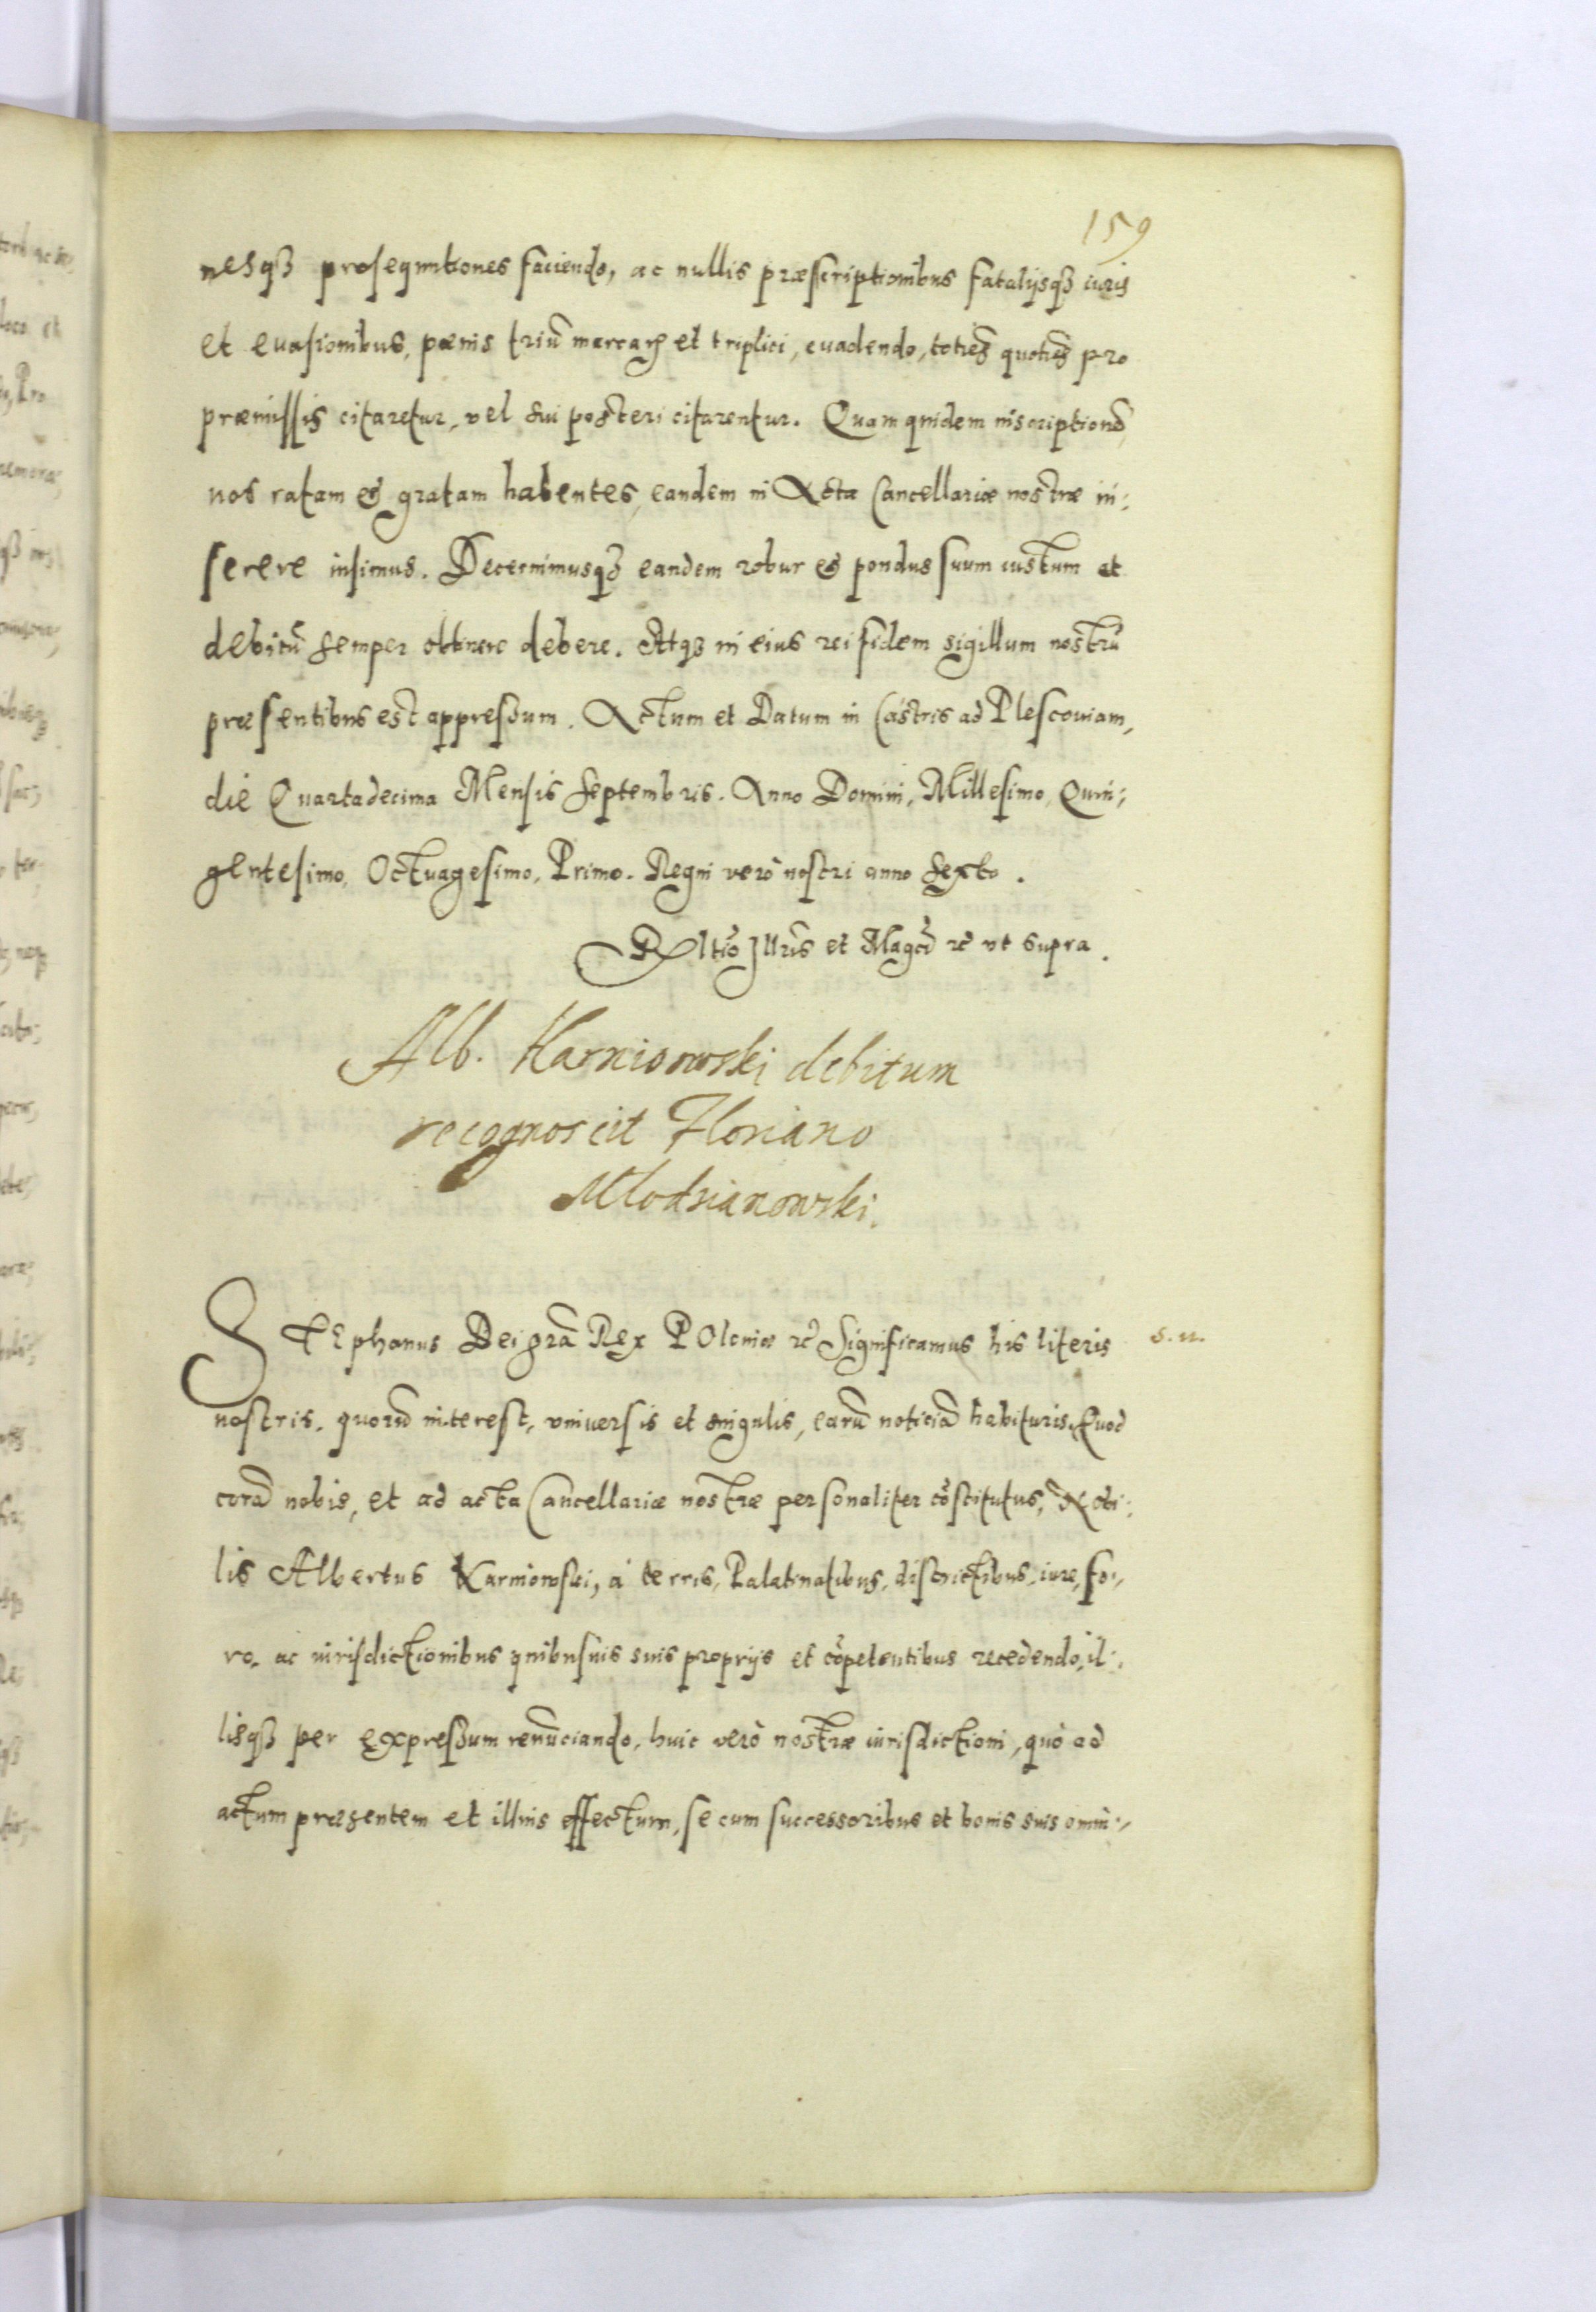 159
nesq3 prosequutiones faciendo, ac nullis præscriptionibus fatalijsq3 iuris
et euasionibus, pœnis triū marcarꝝ et triplici, euadendo, totieš quotieš pro
præmissis citaretur, vel sui posteri citarentur. Quam quidem inscriptionē
nos ratam et gratam habentes, eandem in Acta Cancellariæ nostræ in:
serere iusimus. Decernimusq3 eandem robur et pondus suum iustum et
debitū semper obtinere debere. Atq3 in eius rei fidem sigillum nostrū
præsentibus est appressum. Actum et Datum in Castris ad Plescouiam,
die Quartadecima Mensis Septembris. Anno Domini, Millesimo, Quin:
gentesimo, Octuagesimo, Primo. Regni verò nostri anno sexto.
Rltio Illris et Magci ꝛc̃ vt supra.
Alb. Karniowski debitum
recognoscit Floriano
Mlodzianowski.
STEphanus Dei grã Rex POloniæ ꝛc̃ Significamus his literis
s. n.
nostris. quorū interest, vniuersis et singulis, earū noticiā habituris. Quod
corā nobis, et ad acta Cancellariæ nostræ personaliter cõstitutus, Nobi:
lis Albertus Karniowski, à terris, Palatinatibus, districtibus, iure, fo:
ro, ac iurisdictionibus quibusuis suis proprijs et cõpetentibus recedendo, il:
lisq3 per expressum renūciando, huic verò nostræ iurisdictioni, quò ad
actum præsentem et illius effectum, se cum successoribus et bonis suis omni: